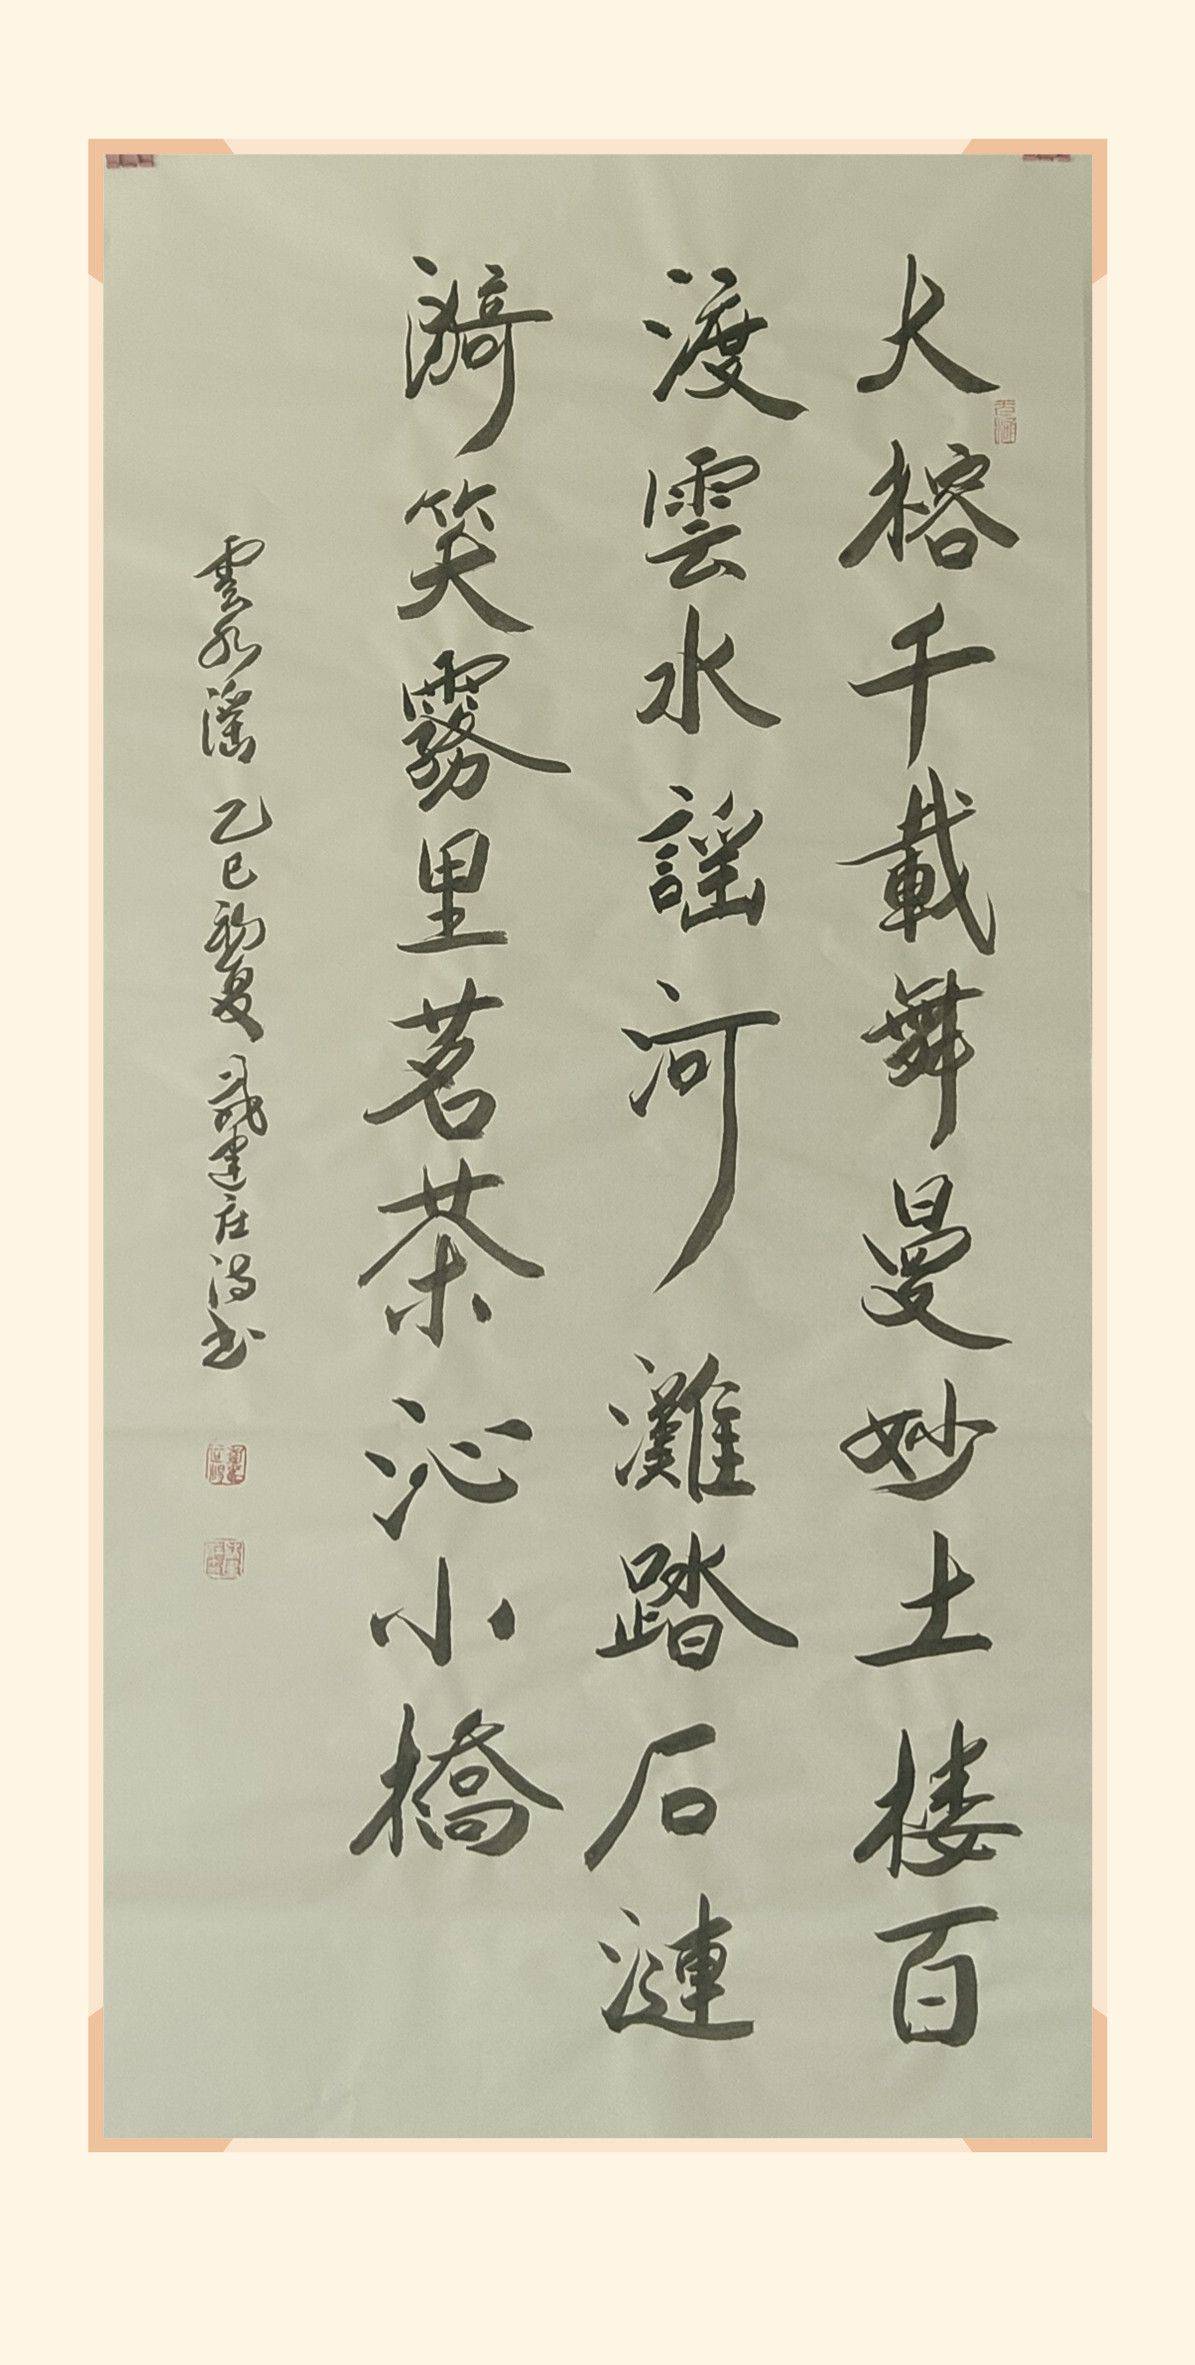 大榕千載舞曼妙土楼百
渡雲水謡河灘踏石漣
漪笑霧里茗茶沁小橋
雲水謡 乙巳初夏 建庄 书